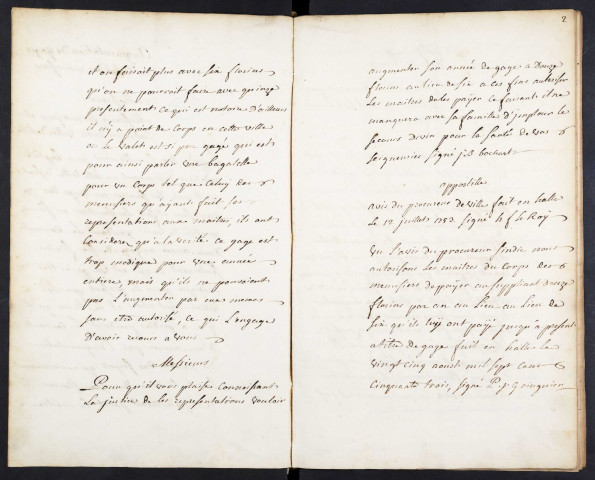 et on faisoit plus avec six florins
qu'on ne pouroit faire avec quinze
presentement ce qui est notoire d'ailleurs
il n'y a point de Corps en cette ville
ou le Valet est si peu gagé qui est
pour ainsi parler une bagatelle
pour un Corps tel que Celuy des
menusiers qu'ayant fait ses
representations aux maitres, ils ont
Consideré qu'a la verité ce gage est
trop modique pour une année
entiere, mais qu'ils ne pouvoient
pas l'augmenter par eux memes
sans etre autorisé, ce qui l'engage
D'avoir recours a vous
Messieurs
Pour qu'il vous plaise Connoissant
La justice de ses representations vouloir
2
augmenter son année de gage a Douze
florins au lieu de six a ces fins autoriser
Les maitres de les payer ce faisant il ne
manquera avec sa famille d'implorer le
secours divin pour la santé de vos
seigneuries signé j: b bochart
appostille
avis du procureur de ville fait en halle
le 12 juillet 1753 signé h f le Roy
Vu l'avis du procureur sindic nous
autorisons Les maitres du Corps des
menusiers de payer au suppliant douze
florins par an au Lieu au Lieu de
six qu'ils luy ont payé jusqu'a present
a titre de gage fait en halle le
vingt cinq aoust mil sept Cent
Cinquante trois, signé P. j.